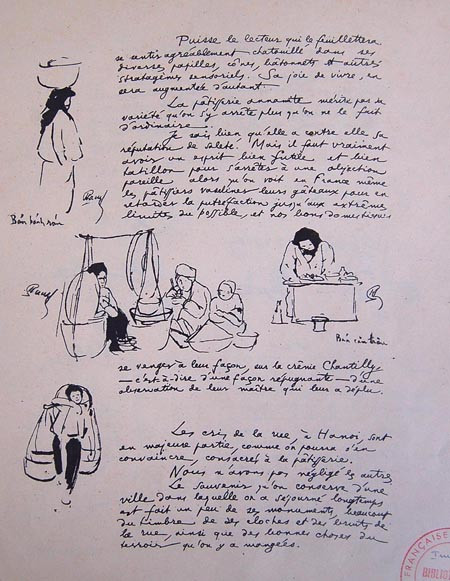 Puisse le lecteur qui le feuillettera
se sentir agréablement chatouillé dans ses
diverses papilles, cônes, bâtonnets et autres
stratagèmes sensoriels. Sa joie de vivre, en
sera augmentée d'autant.
La pâtisserie annamite mérite par sa
variété qu'on s'y arrête plus qu'on ne le fait
d'ordinaire.
Je sais bien qu'elle a contre elle sa
réputation de saleté. Mais il faut vraiment
avoir un esprit bien futile et bien
tatillon pour s'arrêter à une objection
pareille alors qu'on voit en France même
les pâtissiers vaseliner leurs gâteaux pour en
retarder la putréfaction jusqu'aux extrêmes
limites du possible, et nos bons domestiques
Bán bánh rán
se venger à leur façon, sur la crème Chantilly
— c'est-à-dire d'une façon répugnante — d'une
observation de leur maître qui leur a déplu.
Les cris de la rue, à Hanoi, sont
en majeure partie, comme on pourra s'en
convaincre, consacrés à la pâtisserie.
Nous n'avons pas négligé les autres.
Le souvenir qu'on conserve d'une
ville dans laquelle on a séjourné longtemps
est fait un peu de ses monuments, beaucoup
du timbre de ses cloches et des bruits de
la rue, ainsi que des bonnes choses du
terroir qu'on y a mangées.
FRANÇAISE